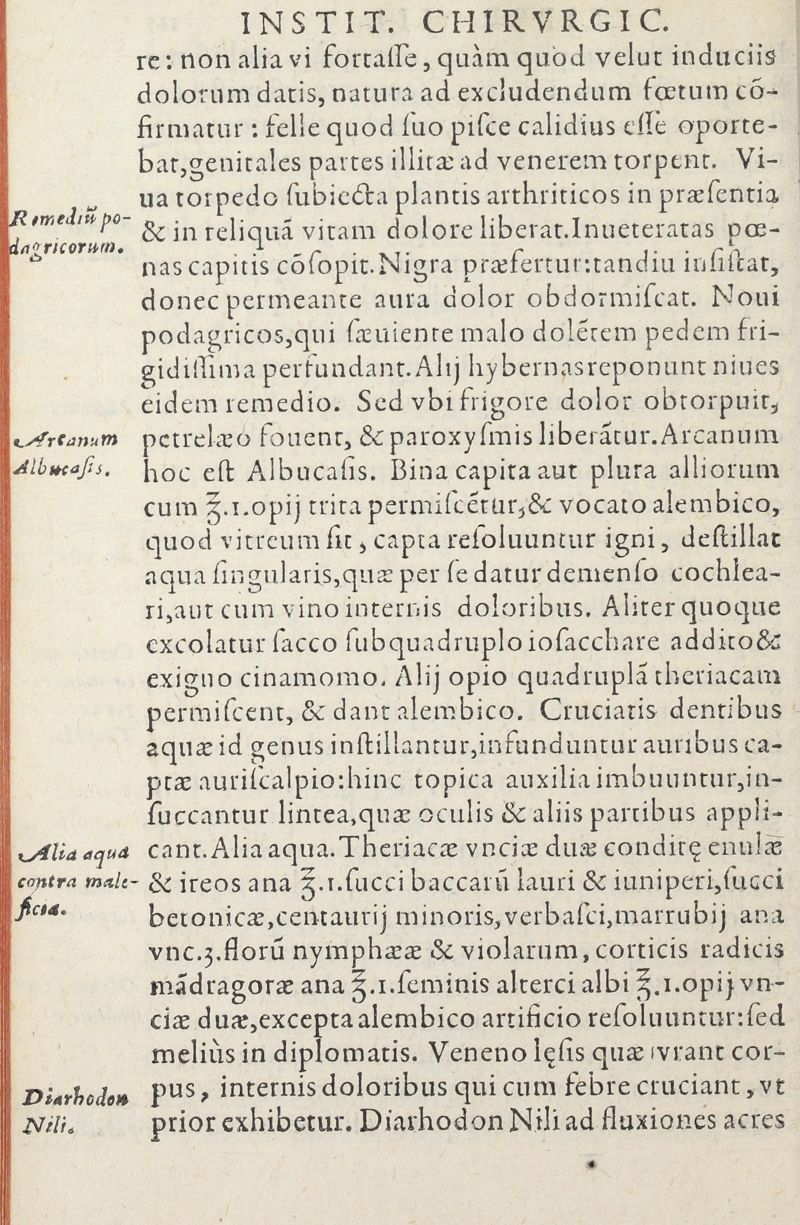 INSTIT. CHIRVRGIC.
re: non alia vi fortaſſe, quàm quòd velut induciis
dolorum datis, natura ad excludendum fœtum cõ-
firmatur: felle quod ſuo piſce calidius eſſe oporte-
bat, genitales partes illitæ ad venerem torpent. Vi-
ua torpedo ſubiecta plantis arthriticos in præſentia
Remediũ po-
dagricorum.
& in reliquã vitam dolore liberat. Inueteratas pœ-
nas capitis cõſopit. Nigra præfertur: tandiu inſiſtat,
donec permeante aura dolor obdormiſcat. Noui
podagricos, qui ſæuiente malo dolẽtem pedem fri-
gidiſſima perfundant. Alij hybernas reponunt niues
eidem remedio. Sed vbi frigore dolor obtorpuit,
Arcanum
Albucaſis.
petrelæo fouent, & paroxyſmis liberãtur. Arcanum
hoc eſt Albucaſis. Bina capita aut plura alliorum
cum ℥.1. opij trita permiſcẽtur, & vocato alembico,
quod vitreum ſit, capta reſoluuntur igni, deſtillat
aqua ſingularis, quæ per ſe datur demenſo cochlea-
ri, aut cum vino internis doloribus. Aliter quoque
excolatur ſacco ſubquadruplo ioſacchare addito &
exiguo cinamomo. Alij opio quadruplã theriacam
permiſcent, & dant alembico. Cruciatis dentibus
aquæ id genus inſtillantur, infunduntur auribus ca-
ptæ auriſcalpio: hinc topica auxilia imbuuntur, in-
ſuccantur lintea, quæ oculis & aliis partibus appli-
Alia aqua
contra male-
ficia.
cant. Alia aqua. Theriacæ vnciæ duæ conditę enulæ
& ireos ana ℥.1. ſucci baccarũ lauri & iuniperi, ſucci
betonicæ, centaurij minoris, verbaſci, marrubij ana
vnc. 3. florũ nymphææ & violarum, corticis radicis
mãdragoræ ana ℥.1. ſeminis alterci albi ℥.1. opij vn-
ciæ duæ, excepta alembico artificio reſoluuntur: ſed
meliùs in diplomatis. Veneno lęſis quæ vrant cor-
Diarhodon
Nili.
pus, internis doloribus qui cum febre cruciant, vt
prior exhibetur. Diarhodon Nili ad fluxiones acres